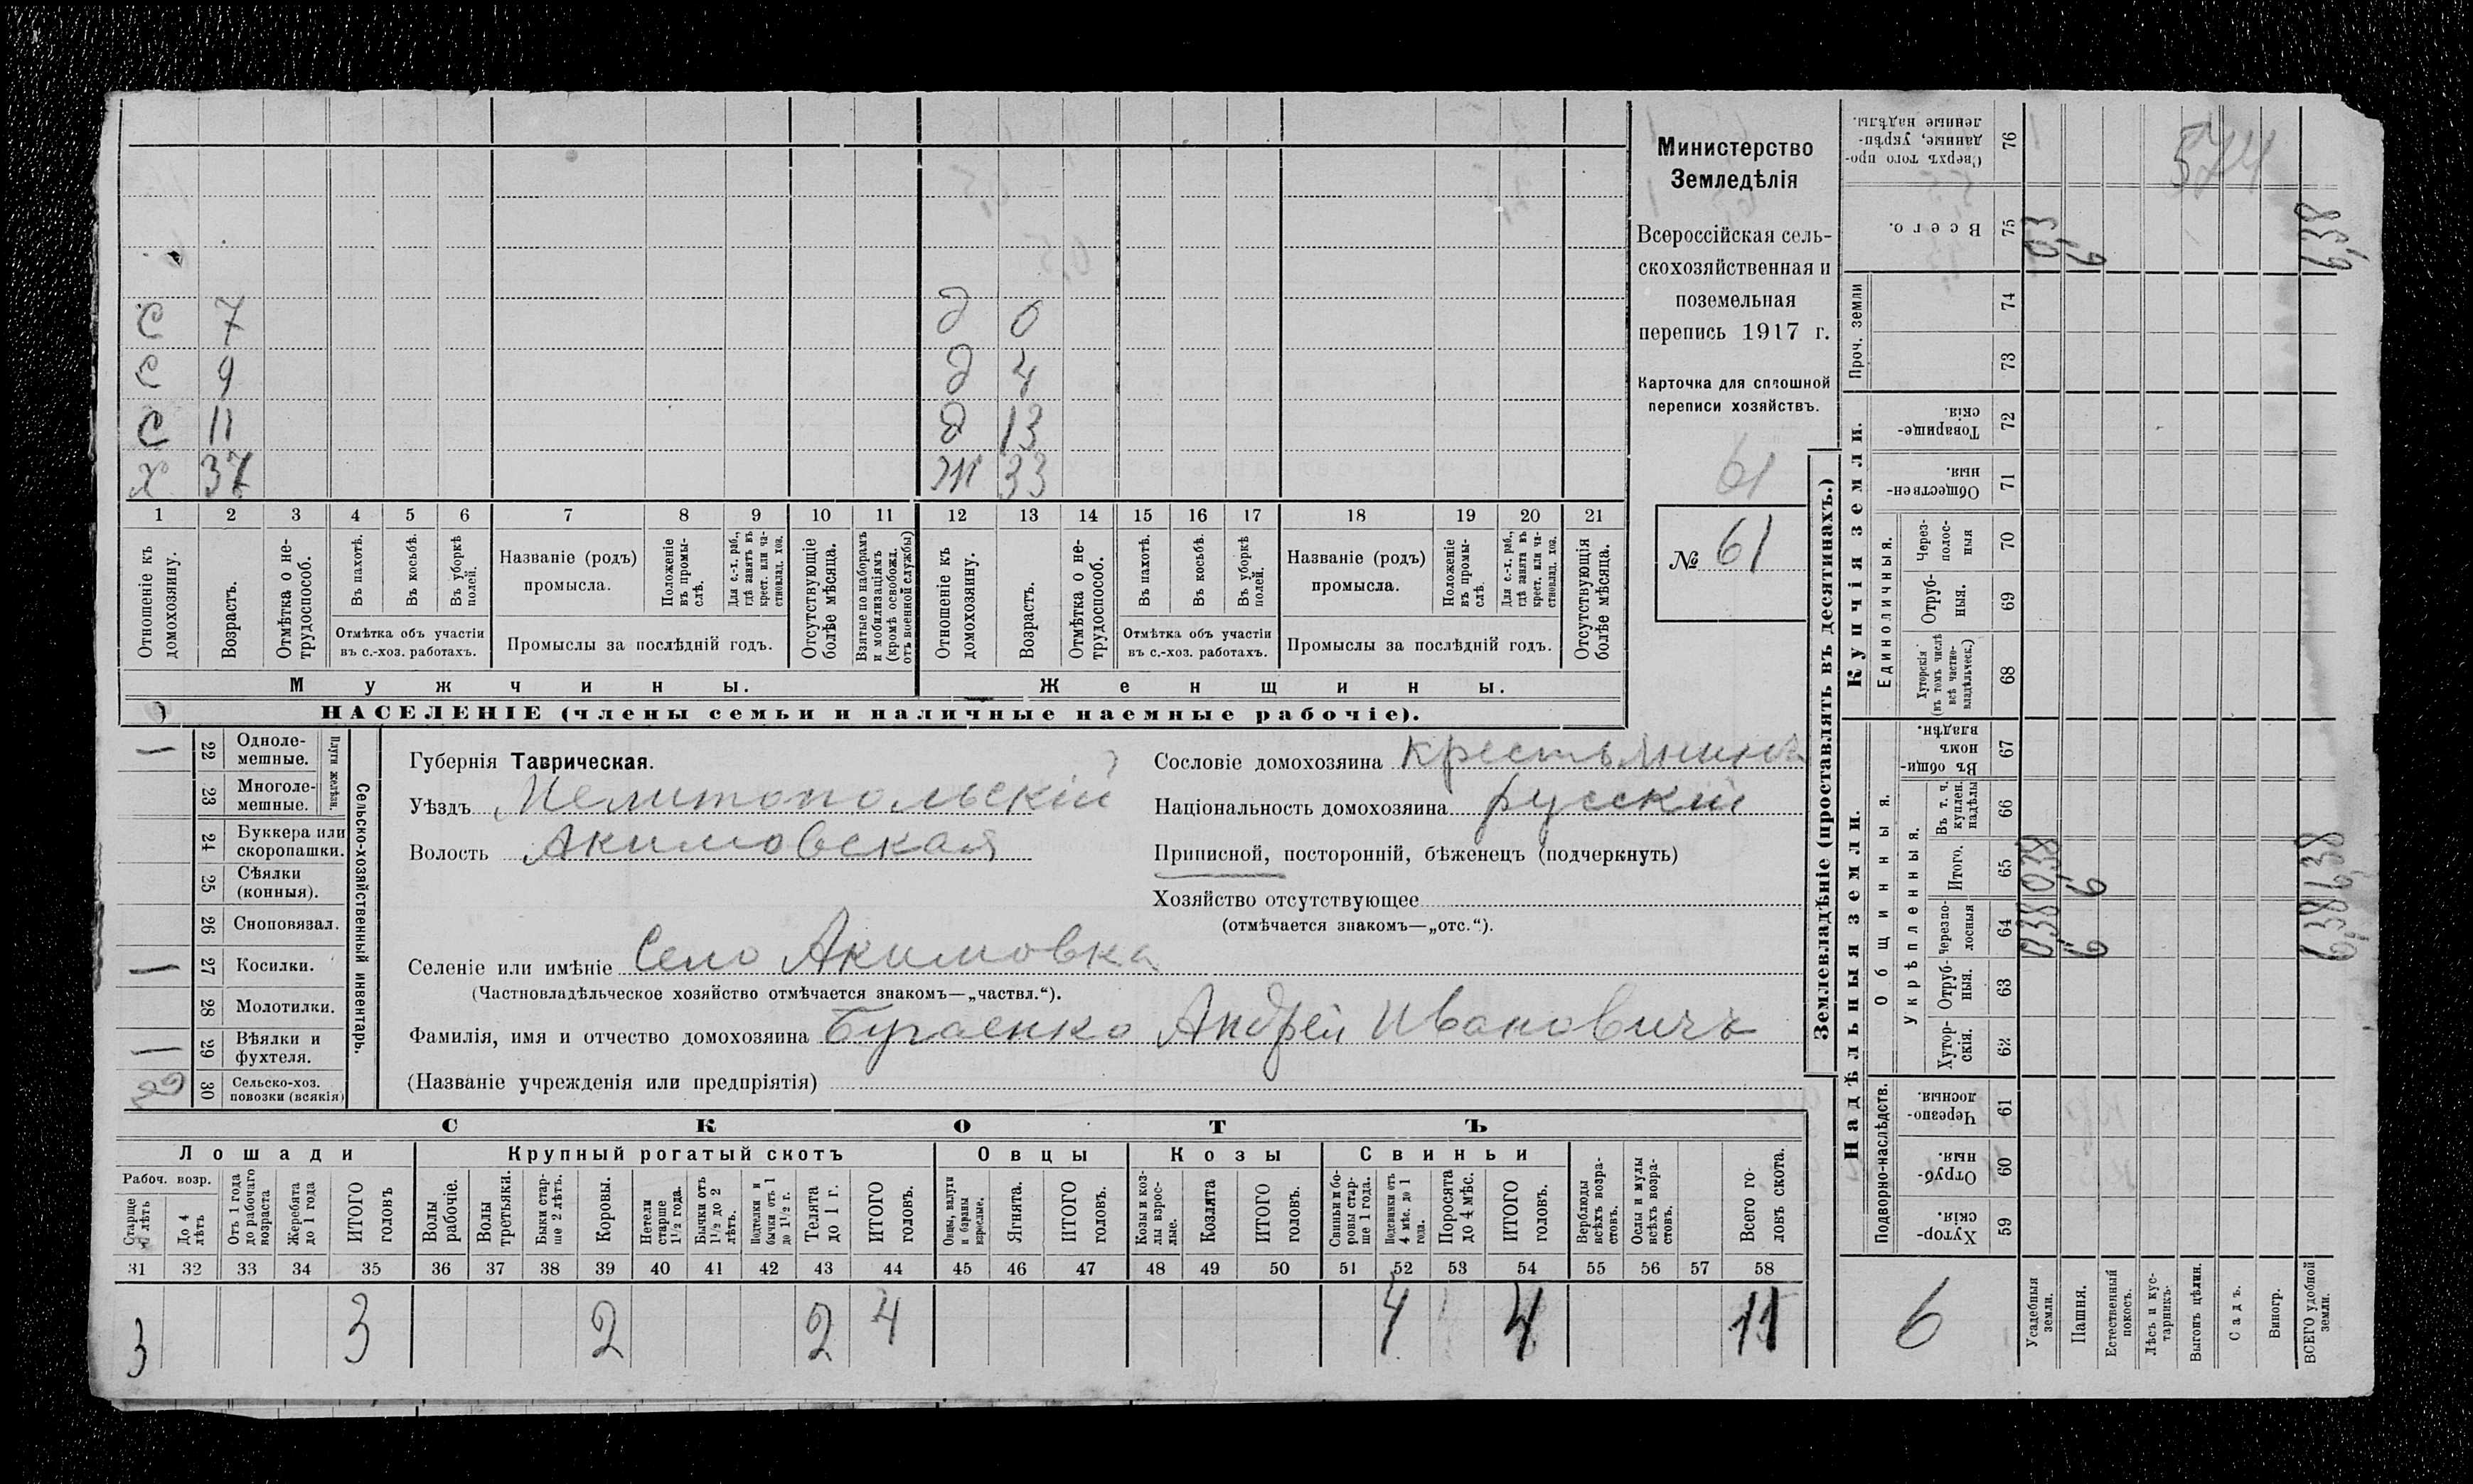 С 7 д 0
С 9 д 4
С 11 д 13
Х 37 Ж 33
1 2 3 4 5 6 7 8 9 10 11 12 13 14 15 16 17 18 19 20 21
Отношеніе къ домохозяину.
Возрастъ.
Отмѣтка о не-
трудоспособ.
Въ пахотѣ.
Въ косьбѣ.
Въ уборкѣ полей.
Отмѣтка объ участіи
въ с.-хоз. работахъ.
Названіе (родъ)
промысла.
Положеніе въ промы-
слѣ.
Для с.-х. раб.,
гдѣ занятъ въ
крест. или ча-
стновлад. хоз.
Промыслы за послѣдній годъ.
Отсутствующіе
болѣе мѣсяца.
Взятые по наборамъ
и мобилизаціямъ
(кромѣ освобожд.
отъ военной службы)
Отношеніе къ
домохозяину.
Возрастъ.
Отмѣтка о не-
трудоспособ.
Въ пахотѣ.
Въ косьбѣ.
Въ уборкѣ
полей.
Отмѣтка объ участіи
въ с.-хоз. работахъ.
Названіе (родъ)
промысла.
Положеніе
въ промы-
слѣ.
Для с.-х. раб.,
гдѣ занята въ
крест. или ча-
стновлад. хоз.
Промыслы за послѣдній годъ.
Отсутствующія
болѣе мѣсяца.
Мужчины.
Женщины.
НАСЕЛЕНІЕ (члены семьи и наличные наемные рабочіе).
Министерство
Земледѣлія
Всероссійская сель-
скохозяйственная и
поземельная
перепись 1917 г.
Карточка для сплошной
переписи хозяйствъ.
61
№ 61
22 Одноле-
мешные.
23 Многоле-
мешные.
Плуги желѣзн.
24 Буккера или
скоропашки.
25 Сѣялки
(конныя).
26 Сноповязал.
27 Косилки.
28 Молотилки.
29 Вѣялки и
фухтеля.
30 Сельско-хоз.
повозки (всякія)
Сельско-хозяйственный инвентарь.
Губернія Таврическая.
Уѣздъ Мелитопольскій
Волость Акимовская
Сословіе домохозяина крестьянинъ
Національность домохозяина русскій
Приписной, посторонній, бѣженецъ (подчеркнуть)
Хозяйство отсутствующее
(отмѣчается знакомъ—„отс.“).
Селеніе или имѣніе Село Акимовка
(Частновладѣльческое хозяйство отмѣчается знакомъ—„частвл.“).
Фамилія, имя и отчество домохозяина Бугаенко Андрей Ивановичъ
(Названіе учрежденія или предпріятія)
СКОТЪ
Лошади
Крупный рогатый скотъ
Овцы
Козы
Свиньи
Рабоч. возр.
Старше
лѣтъ
До 4
лѣтъ
Отъ 1 года
до рабочаго
возраста
Жеребята
до 1 года
ИТОГО
головъ
Волы
рабочіе.
Волы
третьяки.
Быки стар-
ше 2 лѣтъ.
Коровы.
Нетели
старше
1½ года.
Бычки отъ
1½ до 2
лѣтъ.
Подтелки и
бычки отъ 1
до 1½ г.
Телята
до 1 г.
ИТОГО
головъ.
Овцы, валухи
и бараны
взрослые.
Ягнята.
ИТОГО
головъ.
Козы и коз-
лы взрос-
лые.
Козлята
ИТОГО
головъ.
Свиньи и бо-
ровы стар-
ше 1 года.
Подсвинки отъ
4 мѣс. до 1
года.
Поросята
до 4 мѣс.
ИТОГО
головъ.
Верблюды
всѣхъ возра-
стовъ.
Ослы и мулы
всѣхъ возра-
стовъ.
Всего го-
ловъ скота.
31 32 33 34 35 36 37 38 39 40 41 42 43 44 45 46 47 48 49 50 51 52 53 54 55 56 57 58
3 3 2 2 4 4 4 11
Землевладѣніе (проставлять въ десятинахъ.)
Надѣльныя земли.
Купчія земли.
Проч. земли
Подворно-наслѣдств.
Общинныя.
Укрѣпленныя.
Единоличныя.
Сверхъ того про-
данные, укрѣп-
ленные надѣлы.
76
Всего.
75
74
73
Товарище-
скія.
72
Обществен-
ныя.
71
Через-
полос-
ныя
70
Отруб-
ныя.
69
Хуторскія
(въ томъ числѣ
всѣ частно-
владѣльческ.)
68
Въ общи-
номъ
владѣн.
67
Въ т. ч.
куплен.
надѣлы
66
Итого.
65
Черезпо-
лосныя
64
Отруб-
ныя.
63
Хутор-
скія.
62
Черезпо-
лосныя.
61
Отруб-
ныя.
60
Хутор-
скія.
59
574
6,38
6
0,38 6 6,38
0,38 6 6,38
6
Усадебныя
земли.
Пашня.
Естественный
покосъ.
Лѣсъ и кус-
тарникъ.
Выгонъ цѣлин.
Садъ.
Виногр.
ВСЕГО удобной
земли.